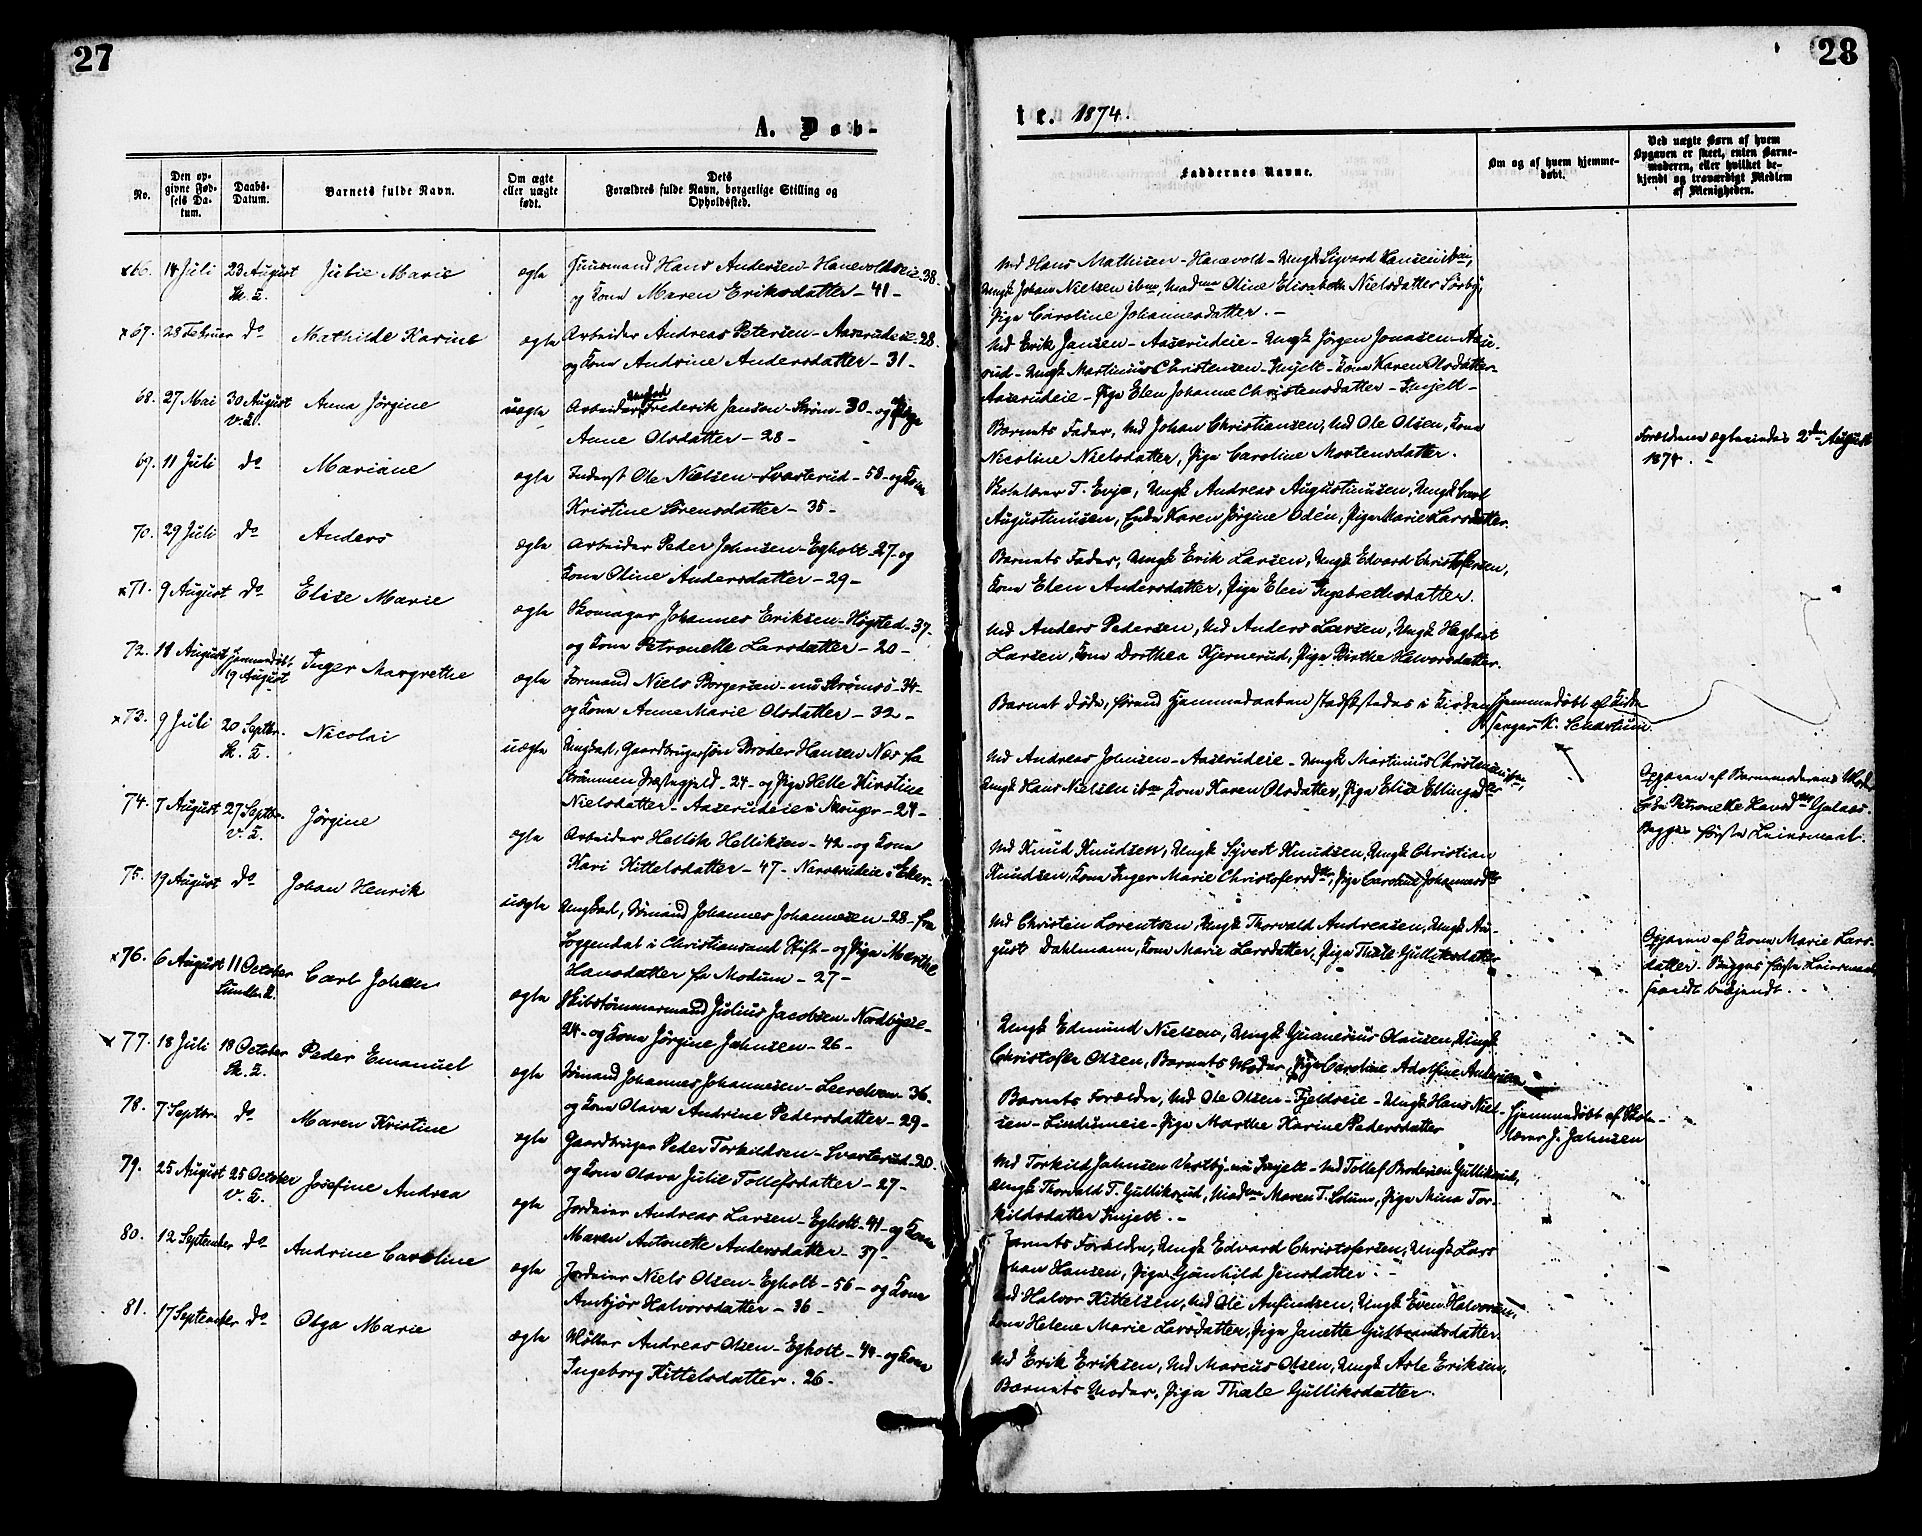 27
A. Døb-
No.
Den op-
givne Fød-
sels Da-
tum.
Daabs-
Datum.
Barnets fulde Navn.
Om ægte
eller uægte
født.
Dets
Forældres fulde Navn, borgerlige Stilling og
Opholdssted.
66. 14 Juli 23 August Julie Marie ægte Huusmand Hans Andersen - Hanevoldseie - 38.
Sk. K. og Kone Maren Eriksdatter - 41 -
67. 28 Februar do Mathilde Karine ægte Arbeider Andreas Petersen - Aaserudeie - 28.
og Kone Andrine Andersdatter - 31 -
68. 27 Mai 30 August Anna Jørgine uægte Arbeider Frederik Janson - Strøm - 30 - og Pige
V. K. Anne Olsdatter - 28 -
69. 11 Juli do Mariane ægte Inderst Ole Nielsen - Svarterud - 58 - og Kone
Kristine Sørensdatter - 35 -
70. 29 Juli do Anders ægte Arbeider Peder Johnsen - Egholt - 27 - og
Kone Oline Andersdatter - 29 -
71. 9 August do Elise Marie ægte Skomager Johannes Eriksen - Høgsted - 37 -
og Kone Petronelle Larsdatter - 20 -
72. 18 August Hjemmedøbt Inger Margrethe ægte Formand Niels Borgersen - nu Strømsø - 34 -
19 August og Kone Anne Marie Olsdatter - 32 -
73. 9 Juli 20 Septbr. Nicolai uægte Ungkarl, Gaardbrugersøn Broder Hansen Næs fra
Sk. K. Strømmen Præstegjeld - 24 - og Pige Helle Kirstine
Nielsdatter - Aaserudeie i Skouger - 24 -
74. 7 August 27 Septbr. Jørgine ægte Arbeider Hellik Helliksen - 42 - og Kone
V. K. Kari Kittelsdatter - 47 - Narverudeie i Eker -
75. 19 August do Johan Henrik uægte Ungkarl, Sømand Johannes Johannesen - 28 - fra
Loggendal i Christiansand Stift - og Pige Marthe
Hansdatter fra Modum - 27 -
76. 6 August 11 October Carl Johan ægte Skibstømmermand Julius Jacobsen - Nordbyeie -
24 - og Kone Jørgine Jahnsen - 26 -
77. 18 Juli 18 October Peder Emanuel ægte Sømand Johannes Johannesen - Leerelven - 36 -
Sk. K. og Kone Olava Andrine Pedersdatter - 29 -
78. 7 Septbr. do Maren Kristine ægte Gaardbruger Peder Torkildsen - Svarterud - 20.
og Kone Olava Julie Tollefsdatter - 27 -
79. 25 August 25 October Josefine Andrea ægte Jordeier Andreas Larsen - Egholt - 41 - og Kone
V. K. Maren Antonette Andersdatter - 37 -
80. 12 September do Andrine Caroline ægte Jordeier Niels Olsen - Egholt - 56 - og Kone
Anbjør Halvorsdatter - 36 -
81. 17 September do Olga Marie ægte Møller Andreas Olsen - Egholt - 44 - og Kone
Ingeborg Kittelsdatter - 26 -
28
te. 1874.
Faddernes Navne.
Om og af hvem hjemme-
døbt.
Ved uægte Børn af hvem
Opgaven er skeet, enten Barne-
moderen, eller hvilket be-
kjendt og troværdigt Medlem
af Menigheden.
Md Hans Mathisen - Hanevold - Ungk Sigvard Hansen ibm,
Ungk Johan Nielsen ibm, Madme Oline Elisabeth Nielsdatter Sørby,
Pige Caroline Johannesdatter. -
Md Erik Jansen - Aaserudeie - Ungk Jørgen Jonasen - Aase-
rud - Ungk Martinius Christensen - Kone Karen Olsdatter
Aaserudeie - Pige Elen Johanne Christensdatter -
Barnets Fader, Md Johan Christiansen, Md Ole Olsen, Kone
Nicoline Nielsdatter, Pige Caroline Mortensdatter.
Forældrene ægteviedes 2den August
1874. -
Skolelærer T. Evje, Ungk Andreas Augustinusen, Ungk Carl
Augustinusen, Enke Karen Jørgine Odén, Pige Marie Larsdatter.
Barnets Fader, Ungk Erik Larsen, Ungk Edvard Christofersen,
Kone Elen Andersdatter, Pige Elen Ingebrethsdatter.
Md Anders Pedersen, Md Anders Larsen, Ungk Hagbart
Larsen, Kone Dorthea Kjernerud, Pige Birthe Halvorsdatter.
Barnet døde, førend Hjemmedaaben stadfæstedes i Kirken Hjemmedøbt af Kirke
sanger K.
Md Andreas Johnsen - Aaserudeie - Ungk Martinius Christensen ibm,
Ungk Hans Nielsen ibm, Kone Karen Olsdatter, Pige Elise Ellingsdtr
Opgaven af Barnemoderens Moder
Enke Petronelle Hansdtr
Begges første Leiermaal.
Md Knud Knudsen, Ungk Syvert Knudsen, Ungk Christian
Knudsen, Kone Inger Marie Christofersdtr, Pige Caroline Johannesdtr
Md Christen Lorentsen, Ungk Thorvald Andreasen, Ungk Au-
gust Dahlmann, Kone Marie Larsdatter, Pige Thale Gulliksdatter
Opgaven af Kone Marie Lars-
datter. Begges første Leiermaal
saavidt bekjendt.
Ungk Edmund Nielsen, Ungk Olausen, Ungk
Christofer Olsen, Barnets Moder, Pige Caroline Adolfine Andersen
Barnets Forældre, Md Ole Olsen - Fjeldseie - Ungk Hans Niel-
sen - Lindumeie - Pige Marthe Karine Pedersdatter
Hjemmedøbt af Skole-
lærer J. Jahnsen
Md Torkild Jahnsen Vestby - Md Tollef Brodersen Gulliksrud,
Ungk Thorvald T. Gulliksrud, Madme Maren T. Solum, Pige Mina Tor-
kildsdatter
Barnets Forældre, Ungk Edvard Christofersen, Ungk Lars
Johan Hansen, Pige Gunhild Jensdatter. -
Md Halvor Kittelsen, Md Ole Anfindsen, Ungk Even Halvorsen,
Kone Helene Marie Larsdatter, Pige Janette Gulbrandsdatter.
Md Erik Eriksen, Md Marcus Olsen, Ungk Asle Eriksen,
Barnets Moder, Pige Thale Gulliksdatter.